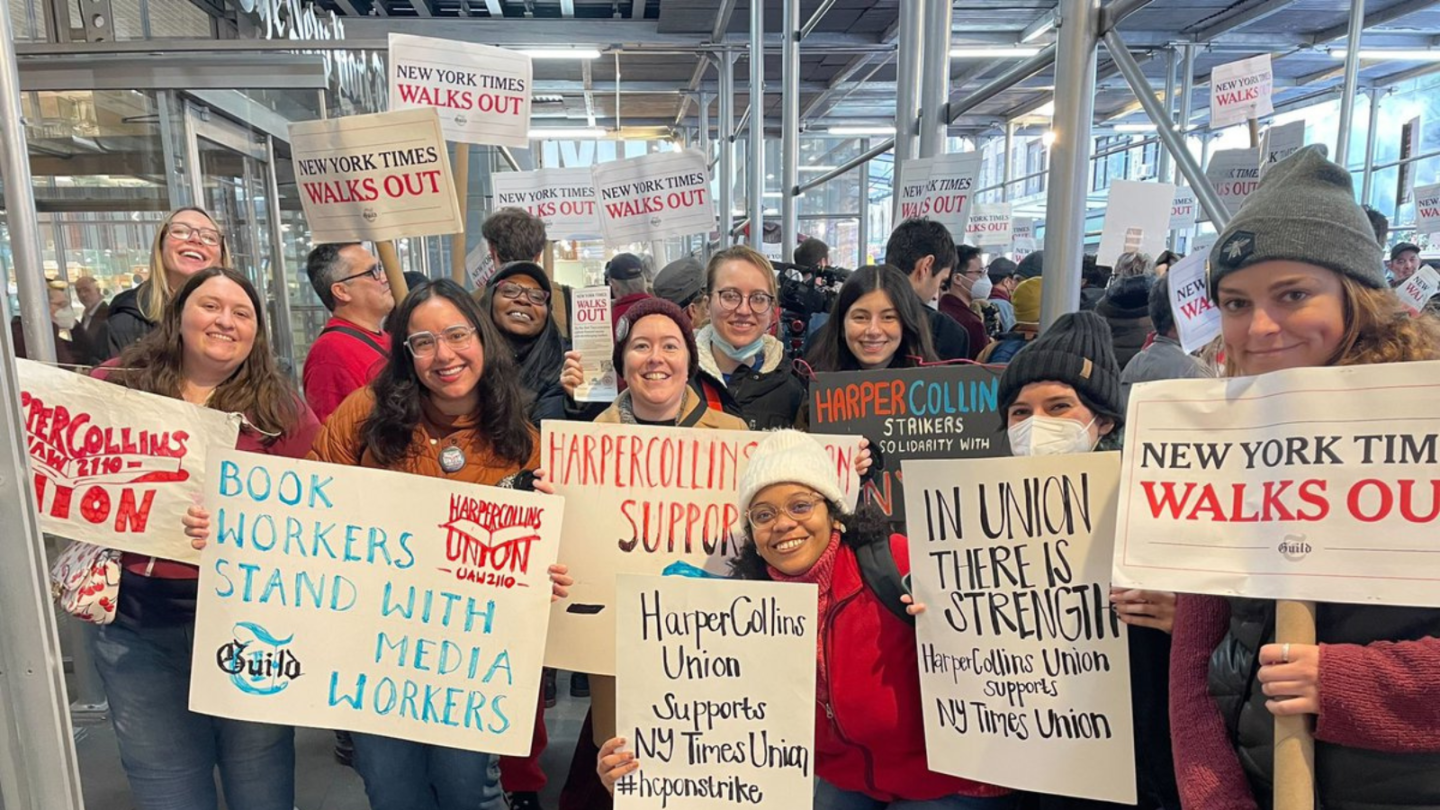 NEW YORK TIMES
WALKS OUT
NEW YORK TIMES
WALKS OUT
NEW YORK TIMES
WALKS OUT
NEW YORK TIMES
WALKS OUT
NEW YORK TIMES
WALKS OUT
NEW YORK TIMES
WALKS OUT
NEW YORK TIMES
WALKS OUT
WALKS
OUT
PERCOLLINS
UAW 2110
UNION
BOOK
WORKERS
STAND WITH
MEDIA
WORKERS
Guild
HARPERCOLLINS
UNION
UAW 2110
HARPERCOLLINS
SUPPOR
HARPERCOLLIN
STRIKERS
SOLIDARITY WITH
NY
HarperCollins
Union
Supports
NY Times Union
#hcponstrike
IN UNION
THERE IS
STRENGTH
HarperCollins Union
supports
NY Times Union
NEW YORK TIM
WALKS OU
Guild